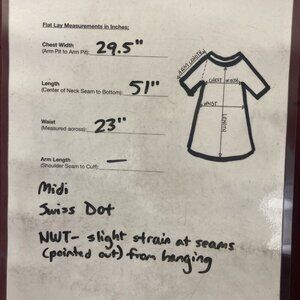 Flat Lay Measurements in Inches:
Chest Width
(Arm Pit to Arm Pit): 29.5"
Length
(Center of Neck Seam to Bottom): 51"
Waist
(Measured across): 23"
Arm Length
(Shoulder Seam to Cuff): —
ARM LENGTH
CHEST WIDTH
WAIST
LENGTH
Midi
Swiss Dot
NWT- slight strain at seams
(pointed out) from hanging